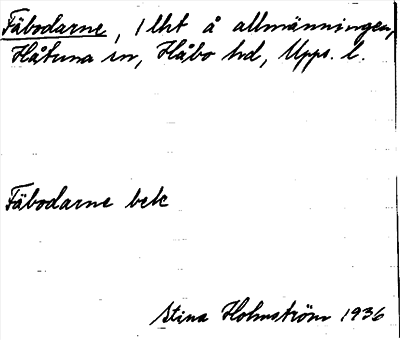 Fäbodarne, 1 lht å allmänningen,
Håtuna sn, Håbo hd, Upps. l.
Fäbodarne bek
Stina Holmström 1936